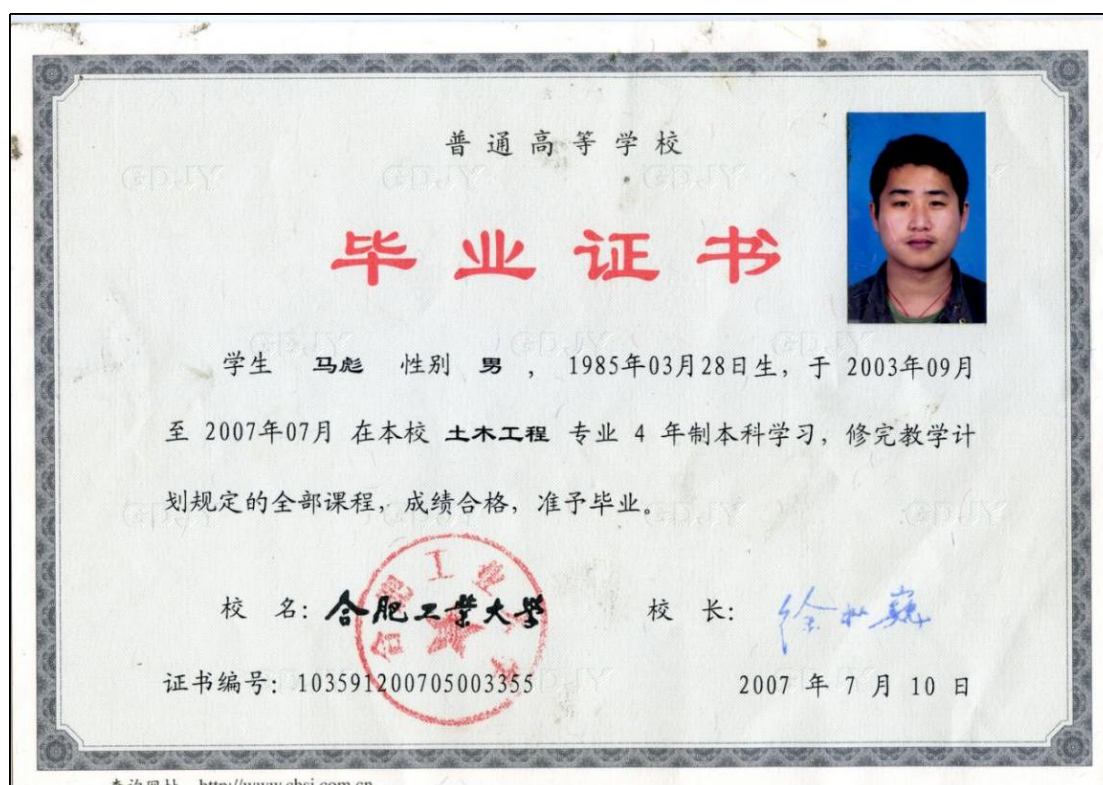 普通高等学校
毕业证书
学生 马彪 性别 男 , 1985年03月28日生, 于 2003年09月
至 2007年07月 在本校 土木工程 专业 4 年制本科学习, 修完教学计
划规定的全部课程, 成绩合格, 准予毕业。
校 名: 合肥工業大學 校 长: 徐枞巍
证书编号: 103591200705003355 2007 年 7 月 10 日
查询网址 http://www.chsi.com.cn
GDJY